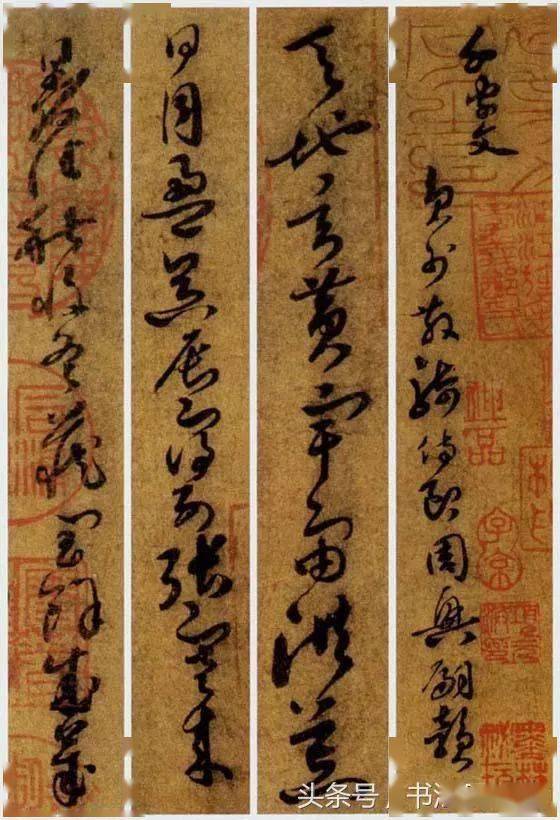 千字文
員外散騎侍郎周興嗣韻
天地玄黃宇宙洪荒
日月盈昃辰宿列張寒來
暑往秋收冬藏閏餘成歲
神品
子京
头条号 / 书法